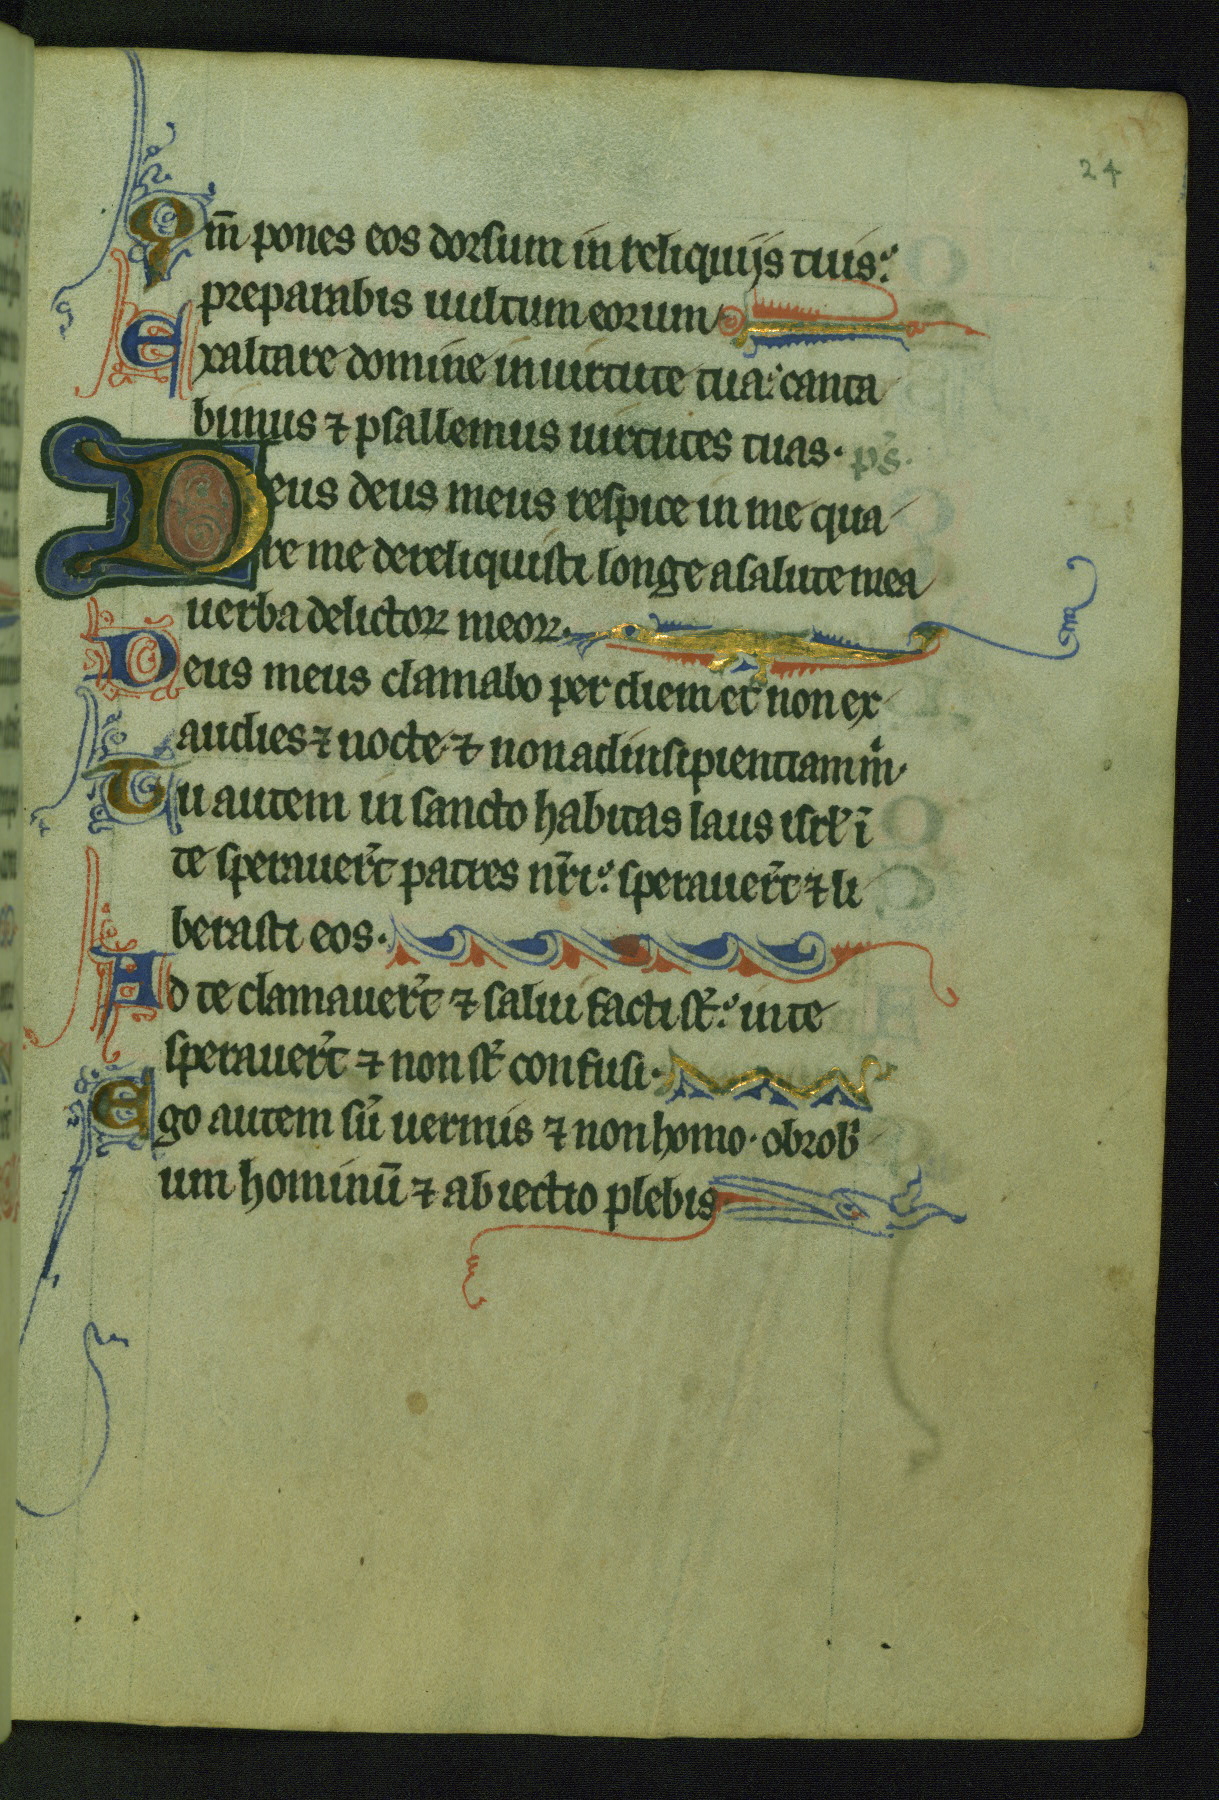 24
Qm̄ pones eos dorsum in reliquijs tuis:
preparabis uultum eorum
Exaltare domine in uirtute tua: canta
bimus ⁊ psallemus uirtutes tuas. ps̄.
Deus deus meus respice in me qua
re me dereliquisti longe a salute mea
uerba delictoꝝ meoꝝ.
Deus meus clamabo per diem et non ex
audies ⁊ nocte ⁊ non ad insipientiam m̄.
Tu autem in sancto habitas laus isrl̄ ī
te sperauer̄t patres nr̄i: sperauer̄t ⁊ li
berasti eos.
Ad te clamauer̄t ⁊ salui facti st̄: in te
sperauer̄t ⁊ non st̄ confusi.
Ego autem sū uermis ⁊ non homo. obrob̄
um hominū ⁊ abiectio plebis